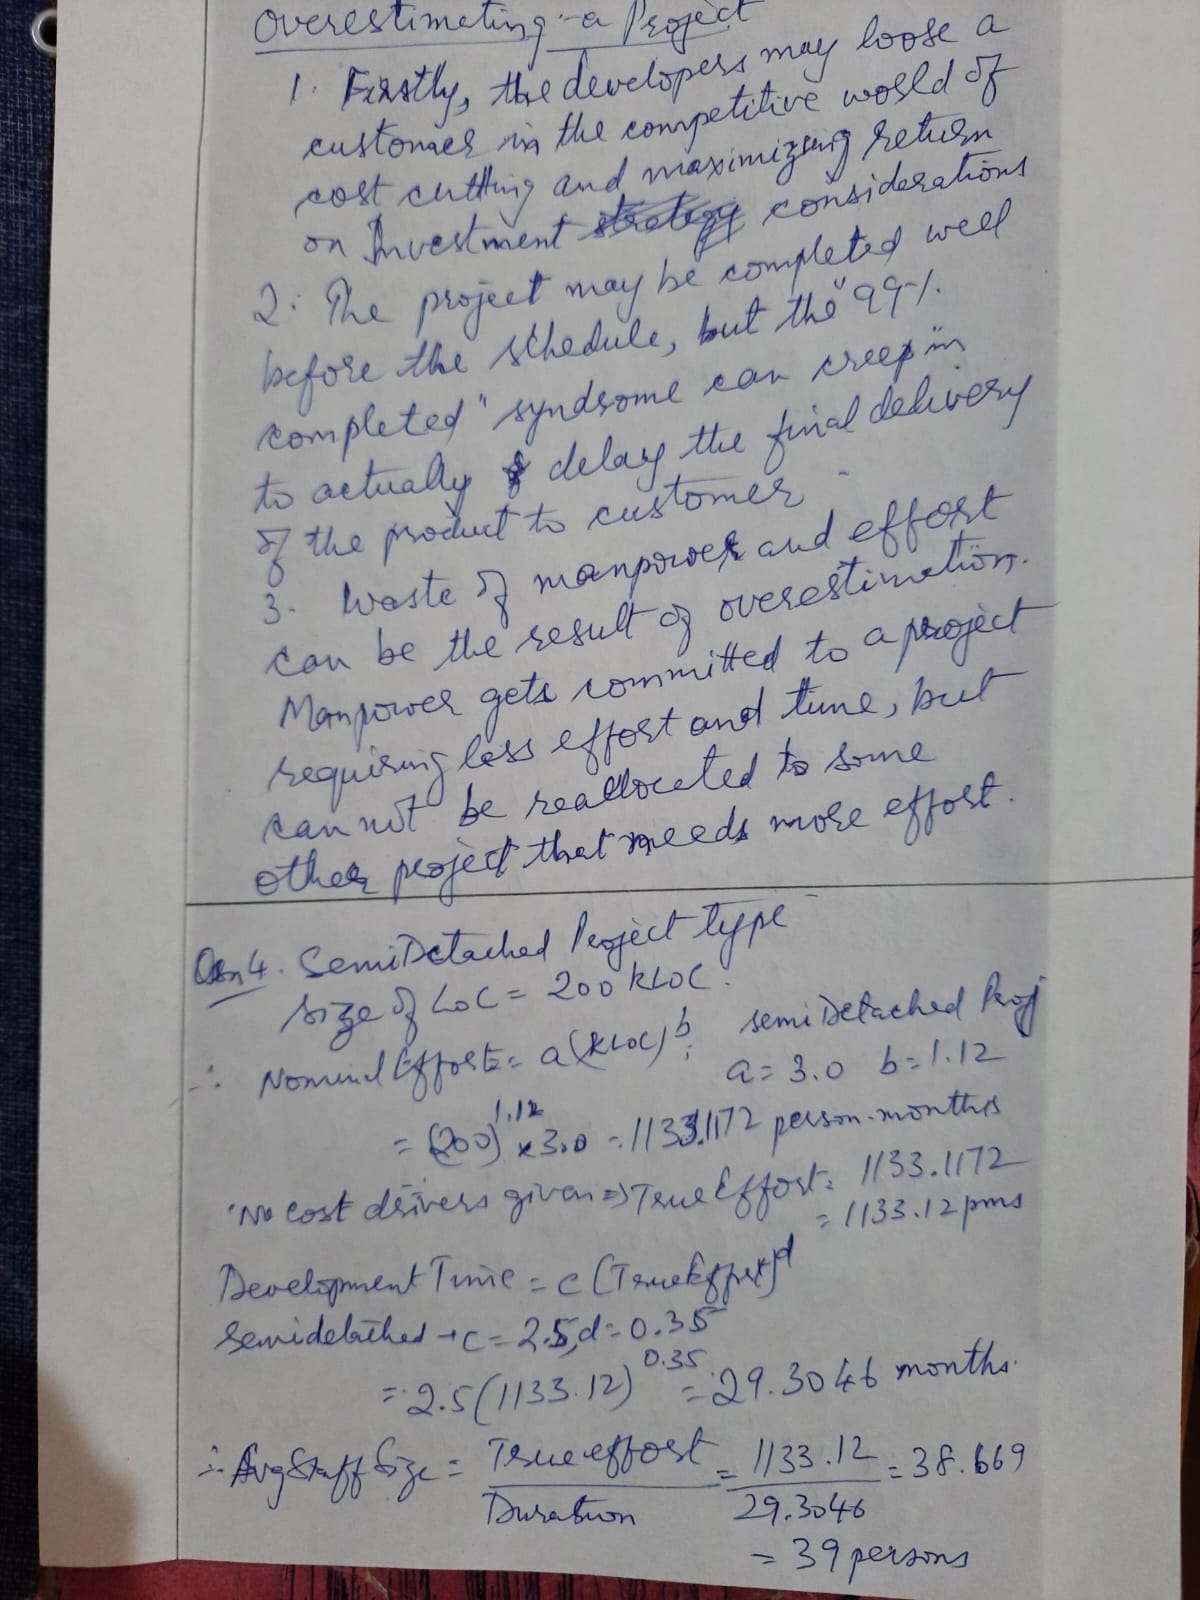 Overestimating - a Project
1. Firstly, the developers may loose a
customer in the competitive world of
cost cutting and maximizing return
on Investment considerations
2. The project may be completed well
before the schedule, but the "99%
completed" syndrome can creep in
to actually delay the final delivery
of the product to customer
3. Waste of manpower and effort
can be the result of overestimation.
Manpower gets committed to a project
requiring less effort and time, but
can not be reallocated to some
other project that needs more effort.
Qsn 4. SemiDetached Project type
Size of LOC = 200 KLOC.
∴ Nominal Effort = a(KLOC)^b; semiDetached Proj
a = 3.0 b = 1.12
= (200)^1.12 × 3.0 = 1133.1172 person-months
No cost drivers given => True Effort = 1133.1172
= 1133.12 pms
Development Time = c (True Effort)^d
Semidetached → c = 2.5, d = 0.35
= 2.5 (1133.12)^0.35 = 29.3046 months.
∴ Avg Staff Size = True effort / Duration = 1133.12 / 29.3046 = 38.669
= 39 persons